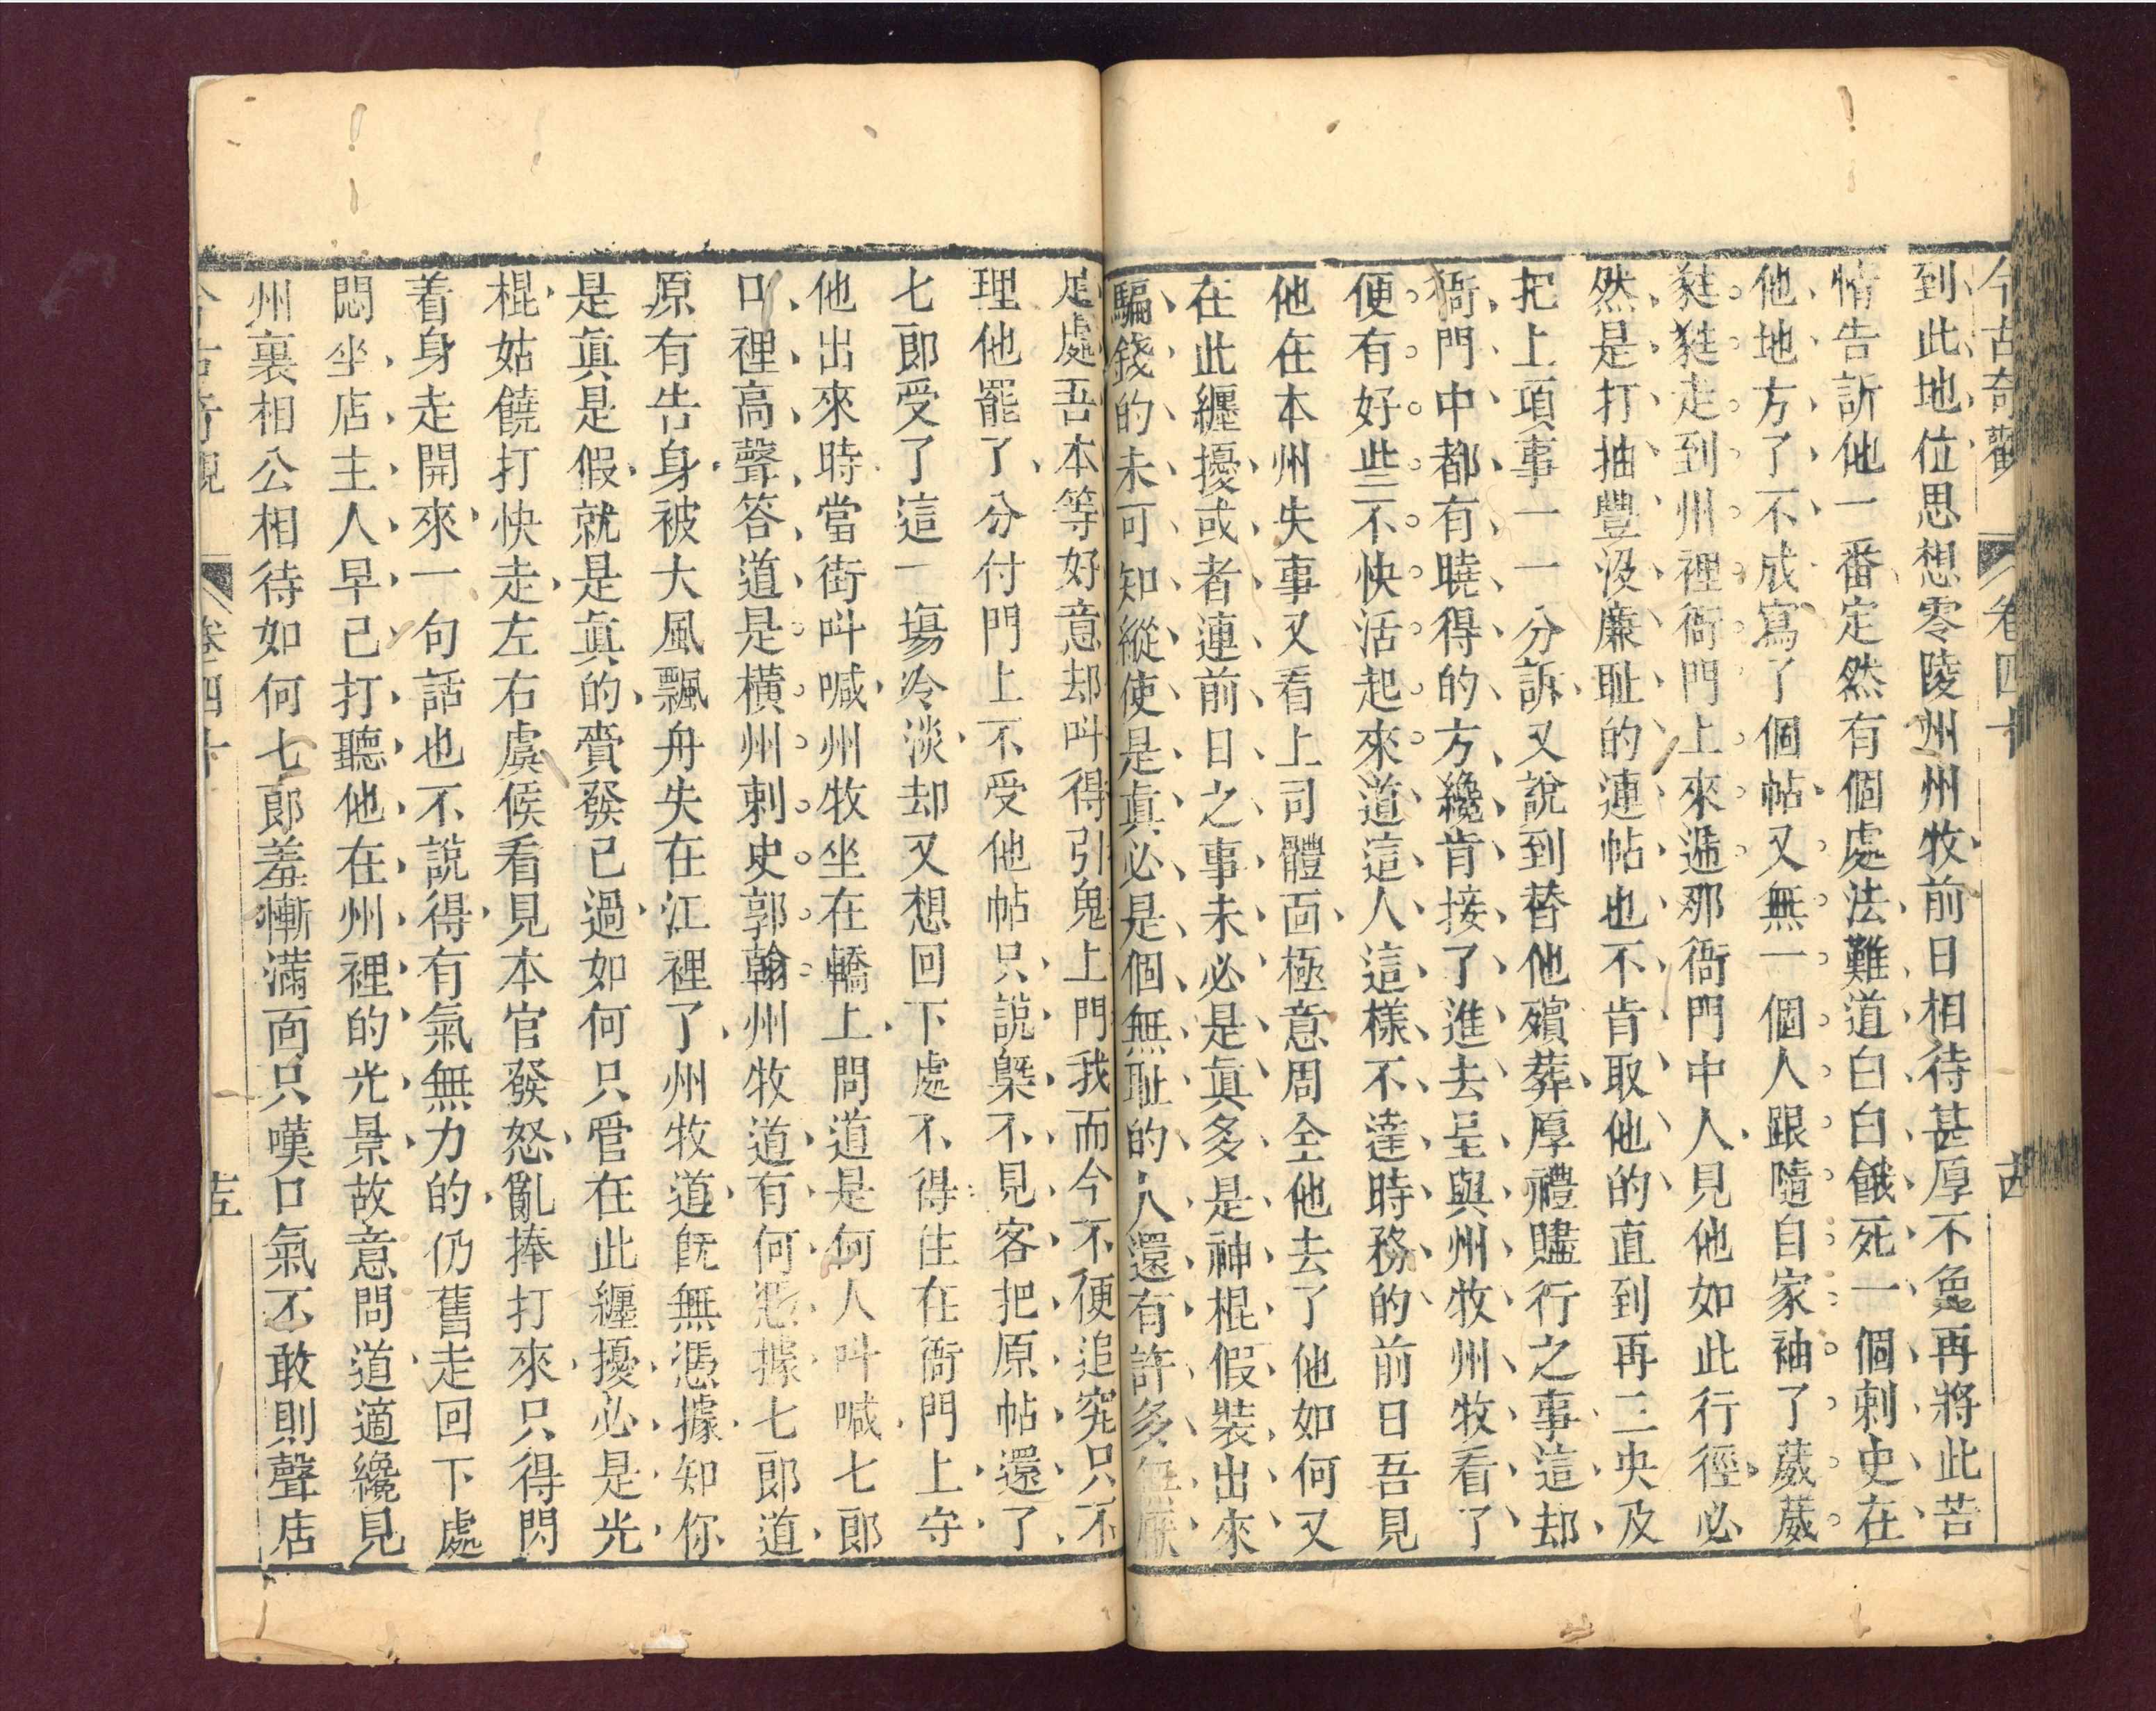 今古奇觀 卷四十
到此地位思想零陵州州牧前日相待甚厚不免再將此苦
情告訴他一番定然有個處法難道白白餓死一個刺史在
他地方了不成寫了個帖又無一個人跟隨自家袖了葳葳
㽔㽔走到州裡衙門上來遞那衙門中人見他如此行徑必
然是打抽豐沒廉耻的連帖也不肯取他的直到再三央及
把上項事一一分訴又說到替他殯葬厚禮贐行之事這却
衙門中都有曉得的方纔肯接了進去呈與州牧州牧看了
便有好些不快活起來道這人這樣不達時務的前日吾見
他在本州失事又看上司體面極意周全他去了他如何又
在此纏擾或者連前日之事未必是真多是神棍假裝出來
騙錢的未可知縱使是真必是個無耻的人還有許多無厭
足處吾本等好意却叫得引鬼上門我而今不便追究只不
理他罷了分付門上不受他帖只說槩不見客把原帖還了
七郎受了這一塲冷淡却又想回下處不得住在衙門上守
他出來時當街叫喊州牧坐在轎上問道是何人叫喊七郎
口裡高聲答道是橫州刺史郭翰州牧道有何憑據七郎道
原有告身被大風飄舟失在江裡了州牧道旣無憑據知你
是眞是假就是眞的賫發已過如何只管在此纏擾必是光
棍姑饒打快走左右虞候看見本官發怒亂捧打來只得閃
着身走開來一句話也不說得有氣無力的仍舊走回下處
悶坐店主人早已打聽他在州裡的光景故意問道適纔見
州裏相公相待如何七郎羞慚滿面只嘆口氣不敢則聲店